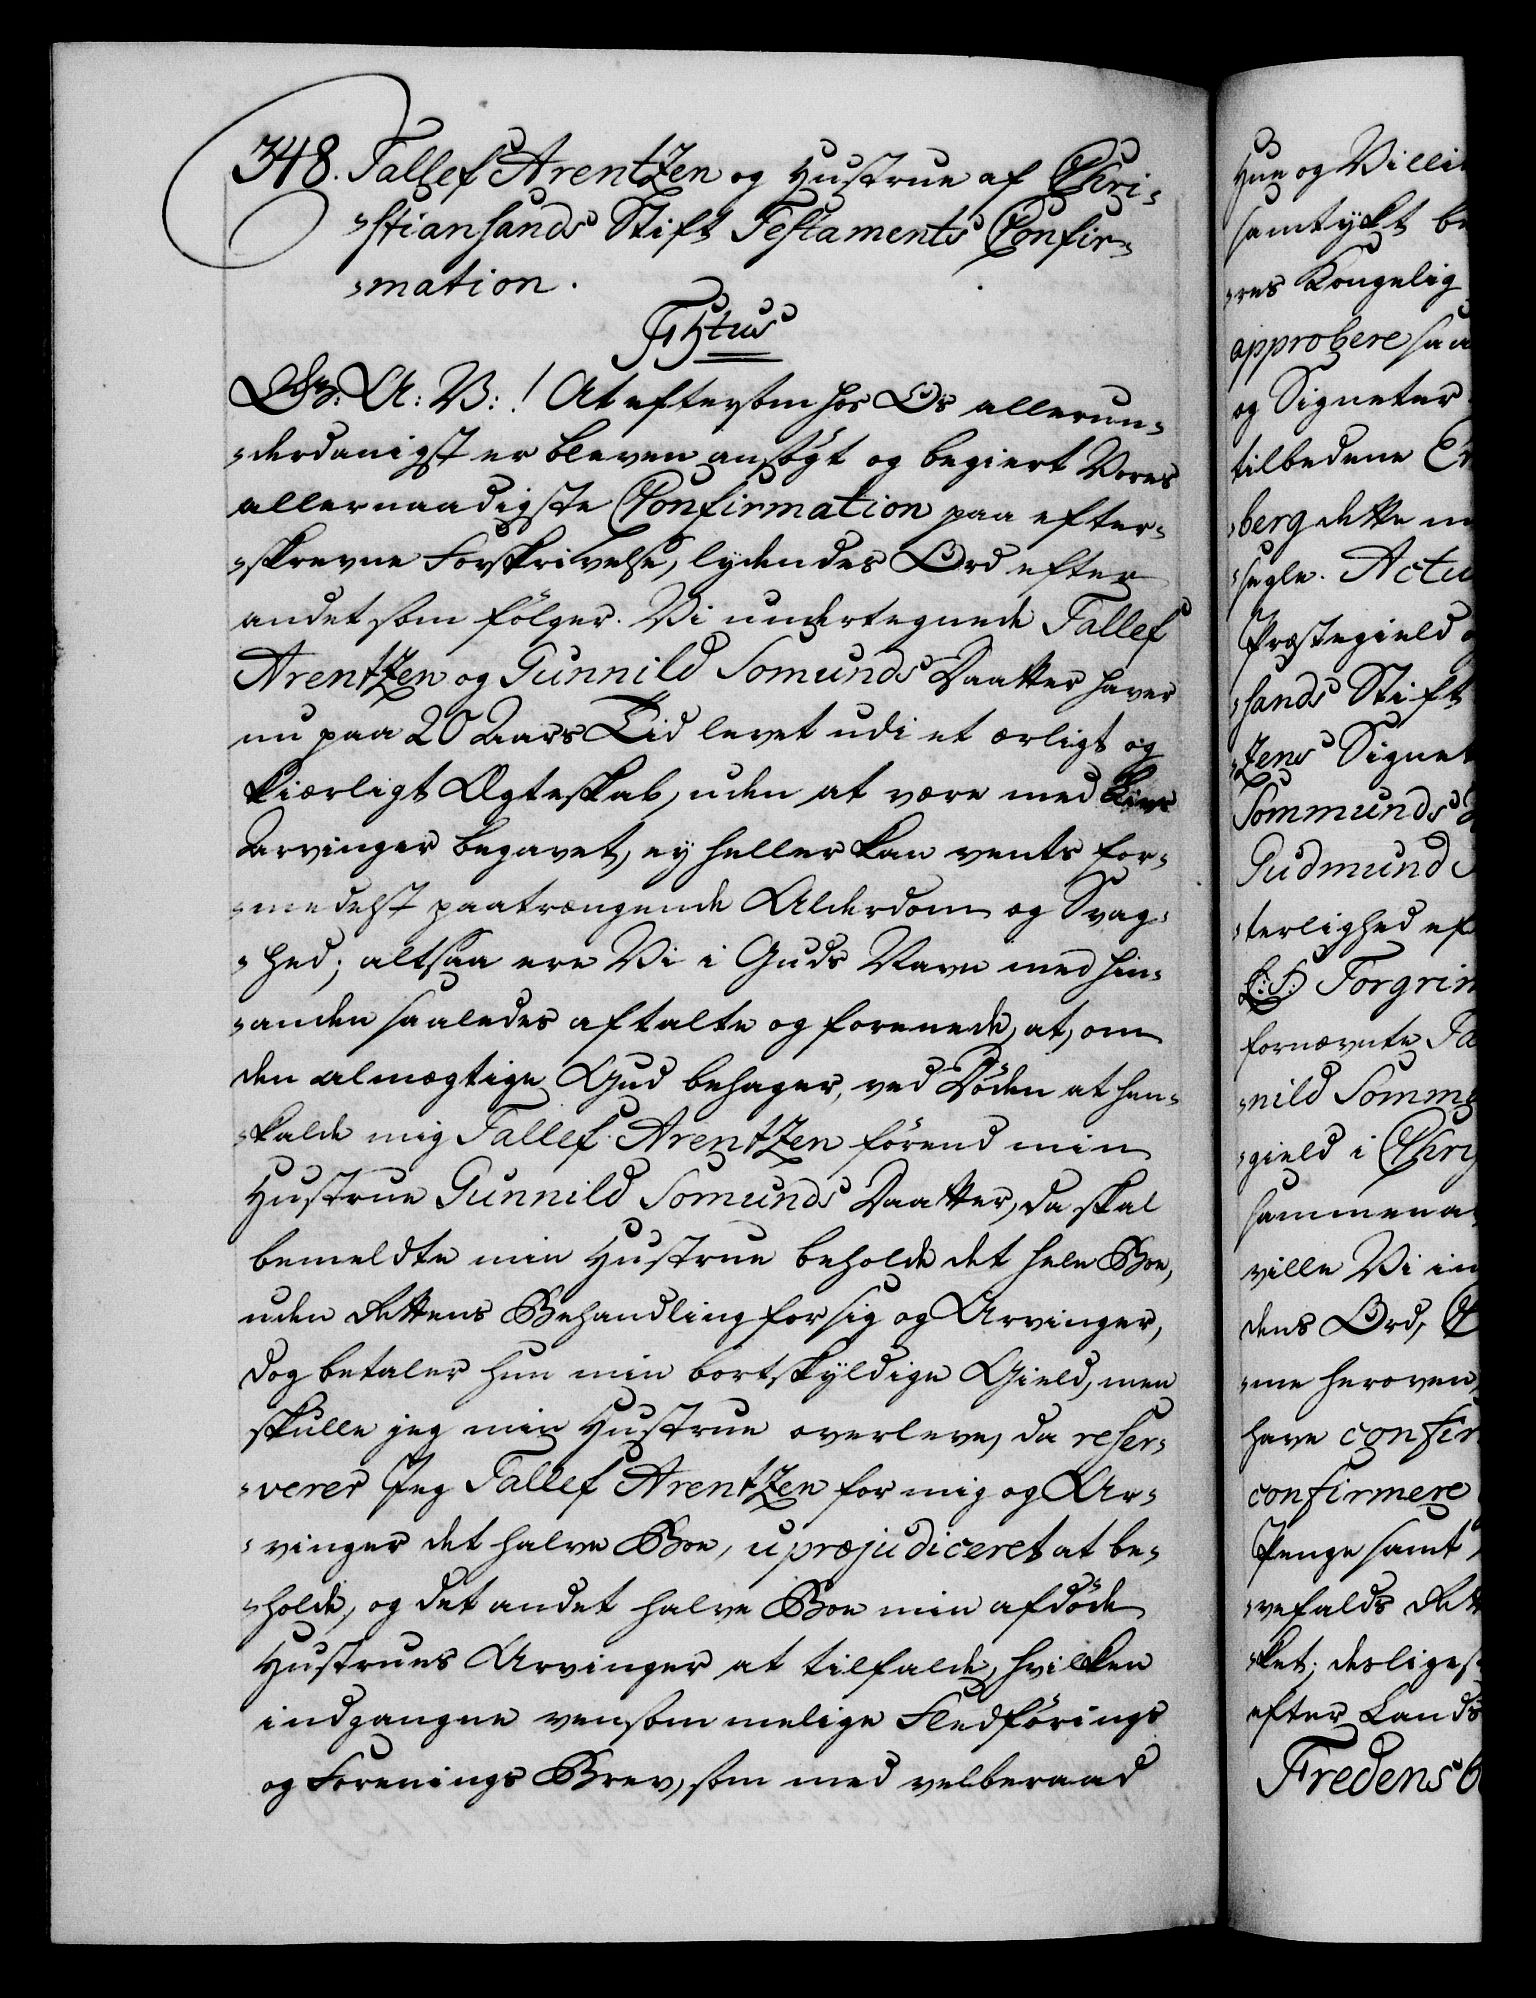 348. Tallef Arentzen og Hustrue af Chri-
-stiansands Stift Testaments Confir-
-mation.
Ttus
Gr: A: V: ! At eftersom hos Os allerun-
-derdanigst er bleven ansögt og begiert Vores
allernaadigste Confirmation paa efter-
-skrevne Forskrivelse, lydendes Ord efter
andet som fölger. Vi undertegnede Tallef
Arentzen og Gunnild Somunds Daatter haver
nu paa 20 Aars Tid levet udi et ærligt og
kiærligt Ægteskab, uden at være med Livs
Arvinger begavet, ej heller kan vente for-
-medelst paatrængende Alderdom og Svag-
-hed; altsaa ere Vi i Guds Navn med hin-
-anden saaledes aftalte og forenede, at, om
den almægtige Gud behager, ved Döden at hen-
-kalde mig Tallef Arentzen förend min
Hustrue Gunnild Somunds Daatter, da skal
bemeldte min Hustrue beholde det hele Boe,
uden Rettens Behandling for sig og Arvinger,
dog betaler hun min bortskyldige Gield, men
skulle jeg min Hustrue overleve, da reser-
-verer Jeg Tallef Arentzen for mig og Ar-
-vinger det halve Boe, upræjudiceret at be-
-holde, og det andet halve Boe min afdöde
Hustrues Arvinger at tilfalde, hvilken
indgangne vensommelige Fledförings
og Forenings Brev, som med velberaad
Hue og Villi
samtykt be
-res Kongelig
approbere saa
og Signeter
tilbedene
-berg dette m
-segle. Actu
Præstegield
-sands Stift
-Zens Signet
Sommunds
Gudmund
-terlighed ef
(L.S.) Torgrim
fornævnte Ta
-nild Somm
-gield i Chri
sammen
ville Vi in
dens Ord,
-me heroven
have confir
confirmere
Penge samt
-vefalds Rett
-ket; desliges
efter Lands
Fredensb